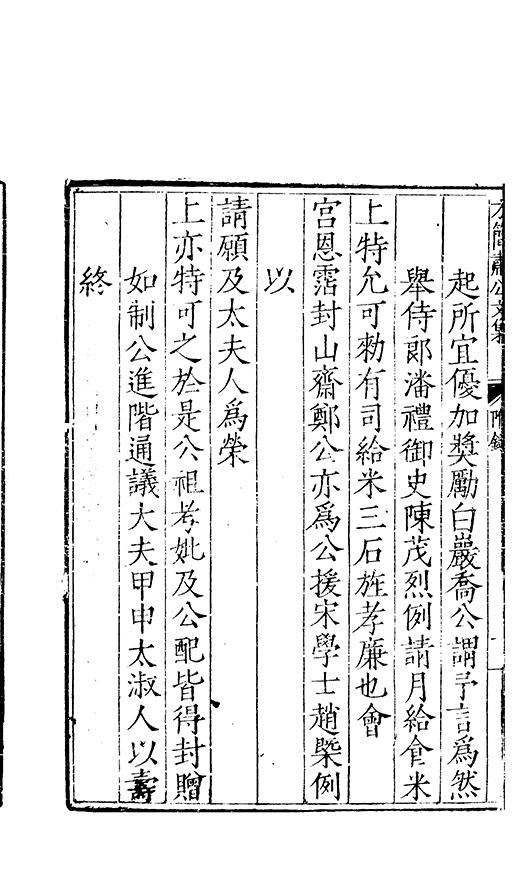 方簡肅公文集 附錄
起所宜優加奬勵白巖喬公謂予言爲然
舉侍郎潘禮御史陳茂烈例請月給食米
上特允可勑有司給米三石旌孝廉也會
宫恩霑封山齋鄭公亦爲公援宋學士趙槩例
以
請願及太夫人爲榮
上亦特可之於是公祖考妣及公配皆得封贈
如制公進階通議大夫甲申太淑人以壽
終